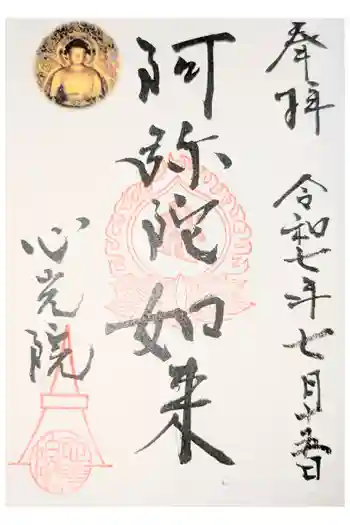 奉拝
令和七年七月十五日
阿弥陀如来
心光院